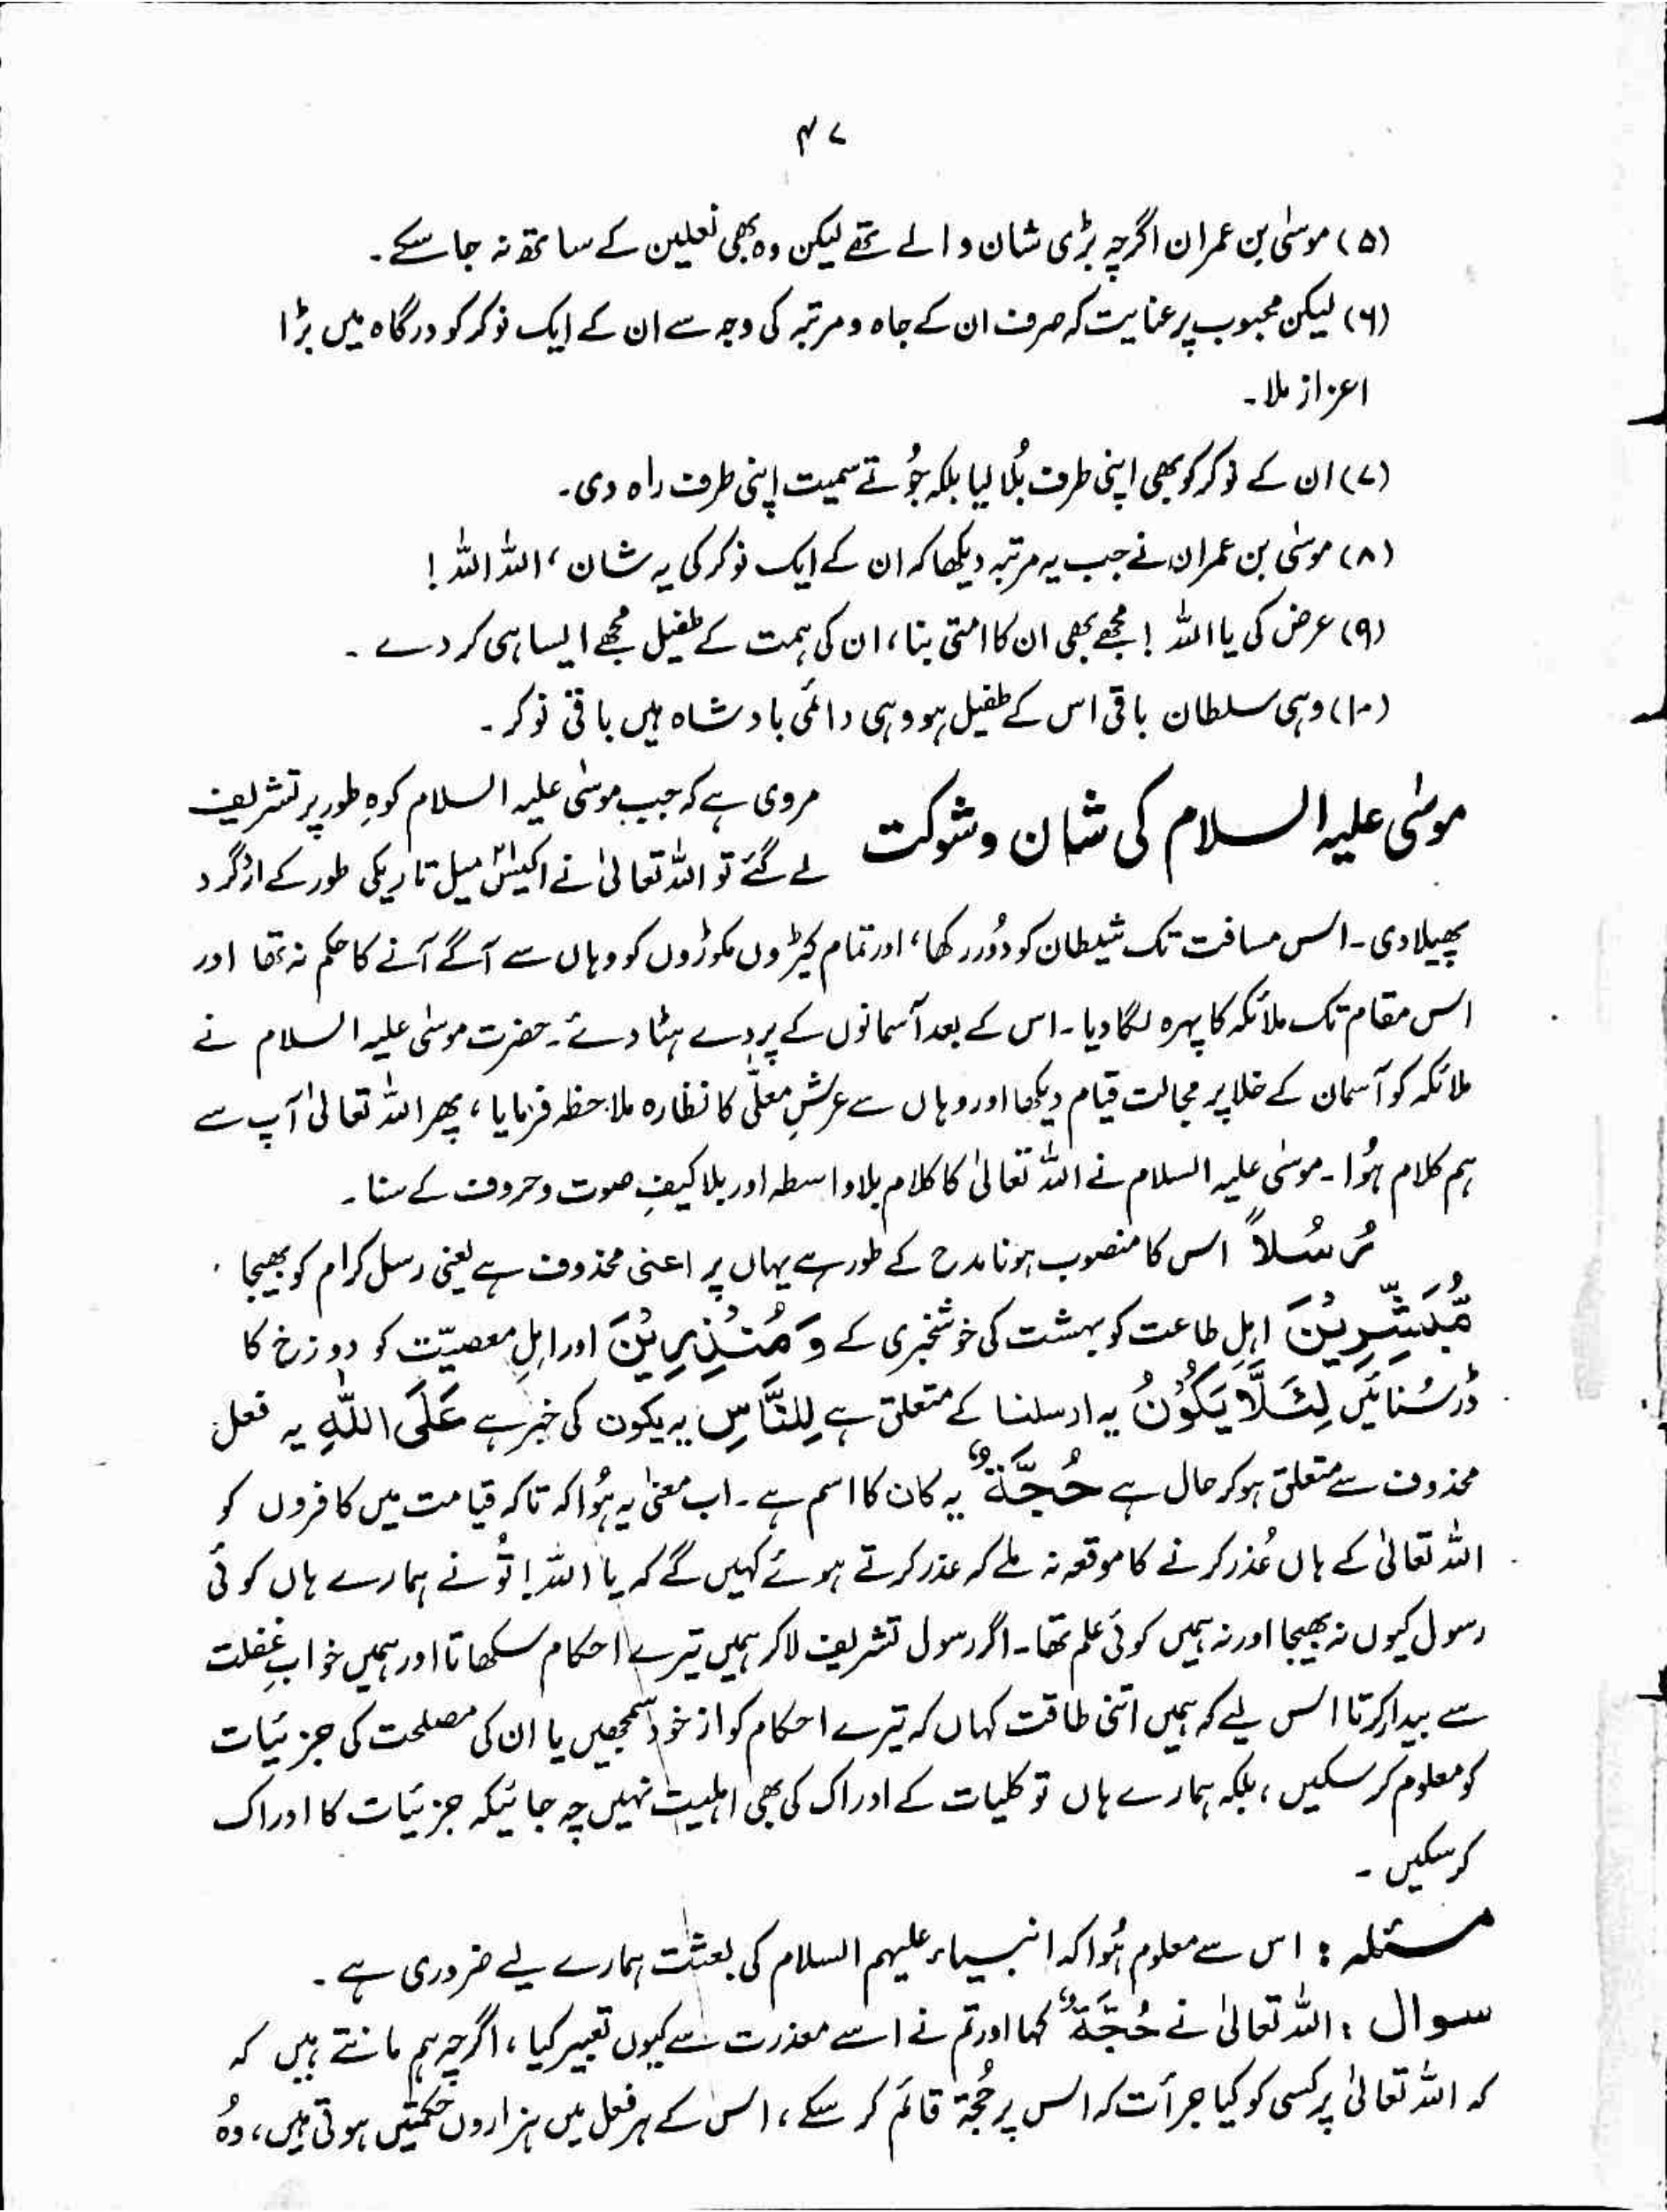 ۴۷
(۵) موسٰی بن عمران اگرچہ بڑی شان والے تھے لیکن وہ بھی نعلین کے ساتھ نہ جا سکے۔
(۶) لیکن محبوب پر عنایت کہ صرف ان کے جاہ و مرتبہ کی وجہ سے ان کے ایک نوکر کو درگاہ میں بڑا
اعزاز ملا۔
(۷) ان کے نوکر کو بھی اپنی طرف بُلا لیا بلکہ جُوتے سمیت اپنی طرف راہ دی۔
(۸) موسٰی بن عمران نے جب یہ مرتبہ دیکھا کہ ان کے ایک نوکر کی یہ شان، اللہ اللہ!
(۹) عرض کی یا اللہ! مجھے بھی ان کا امتی بنا، ان کی ہمت کے طفیل مجھے ایسا ہی کر دے۔
(۱۰) وہی سلطان باقی اس کے طفیل ہو وہی دائمی بادشاہ ہیں باقی نوکر۔
موسٰی علیہ السلام کی شان و شوکت
مروی ہے کہ جب موسٰی علیہ السلام کوہِ طور پر تشریف
لے گئے تو اللہ تعالیٰ نے اکیس میل تاریکی طور کے ارد گرد
پھیلا دی۔ اس مسافت تک شیطان کو دُور رکھا، اور تمام کیڑوں مکوڑوں کو وہاں سے آگے آنے کا حکم نہ تھا اور
اس مقام تک ملائکہ کا پہرہ لگا دیا۔ اس کے بعد آسمانوں کے پردے ہٹا دئے۔ حضرت موسٰی علیہ السلام نے
ملائکہ کو آسمان کے خلا پر بحالت قیام دیکھا اور وہاں سے عرشِ معلّٰی کا نظارہ ملاحظہ فرمایا، پھر اللہ تعالیٰ آپ سے
ہم کلام ہُوا۔ موسٰی علیہ السلام نے اللہ تعالیٰ کا کلام بلا واسطہ اور بلا کیفِ صوت و حروف کے سنا۔
رُسُلاً اس کا منصوب ہونا مدح کے طور ہے یہاں پر اعنی محذوف ہے یعنی رسل کرام کو بھیجا
مُّبَشِّرِیْنَ اہلِ طاعت کو بہشت کی خوشخبری کے وَ مُنْذِرِیْنَ اور اہلِ معصیّت کو دوزخ کا
ڈر سُنائیں لِئَلَّا یَکُوْنُ یہ ارسلنا کے متعلق ہے لِلنَّاسِ یہ یکون کی خبر ہے عَلَی اللّٰہِ یہ فعل
محذوف سے متعلق ہو کر حال ہے حُجَّۃٌ یہ کان کا اسم ہے۔ اب معنیٰ یہ ہُوا کہ تاکہ قیامت میں کافروں کو
اللہ تعالیٰ کے ہاں عُذر کرنے کا موقعہ نہ ملے کہ عذر کرتے ہوئے کہیں گے کہ یا اللہ! تُو نے ہمارے ہاں کوئی
رسول کیوں نہ بھیجا اور نہ ہمیں کوئی علم تھا۔ اگر رسول تشریف لا کر ہمیں تیرے احکام سکھاتا اور ہمیں خوابِ غفلت
سے بیدار کرتا اس لیے کہ ہمیں اتنی طاقت کہاں کہ تیرے احکام کو از خود سمجھیں یا ان کی مصلحت کی جزئیات
کو معلوم کر سکیں، بلکہ ہمارے ہاں تو کلیات کے ادراک کی بھی اہلیت نہیں چہ جائیکہ جزئیات کا ادراک
کر سکیں۔
مسئلہ : اس سے معلوم ہُوا کہ انبیاء علیہم السلام کی بعثت ہمارے لیے ضروری ہے۔
سوال : اللہ تعالیٰ نے حُجَّۃٌ کہا اور تم نے اسے معذرت سے کیوں تعبیر کیا، اگرچہ ہم مانتے ہیں کہ
کہ اللہ تعالیٰ پر کسی کو کیا جرأت کہ اس پر حُجۃ قائم کر سکے، اس کے ہر فعل میں ہزاروں حکمتیں ہوتی ہیں، وہُ